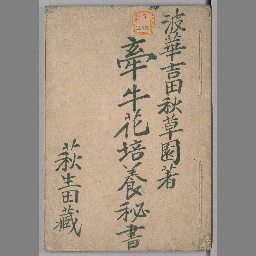 波華吉田秋草園著
牽牛花培養秘書
萩生田藏